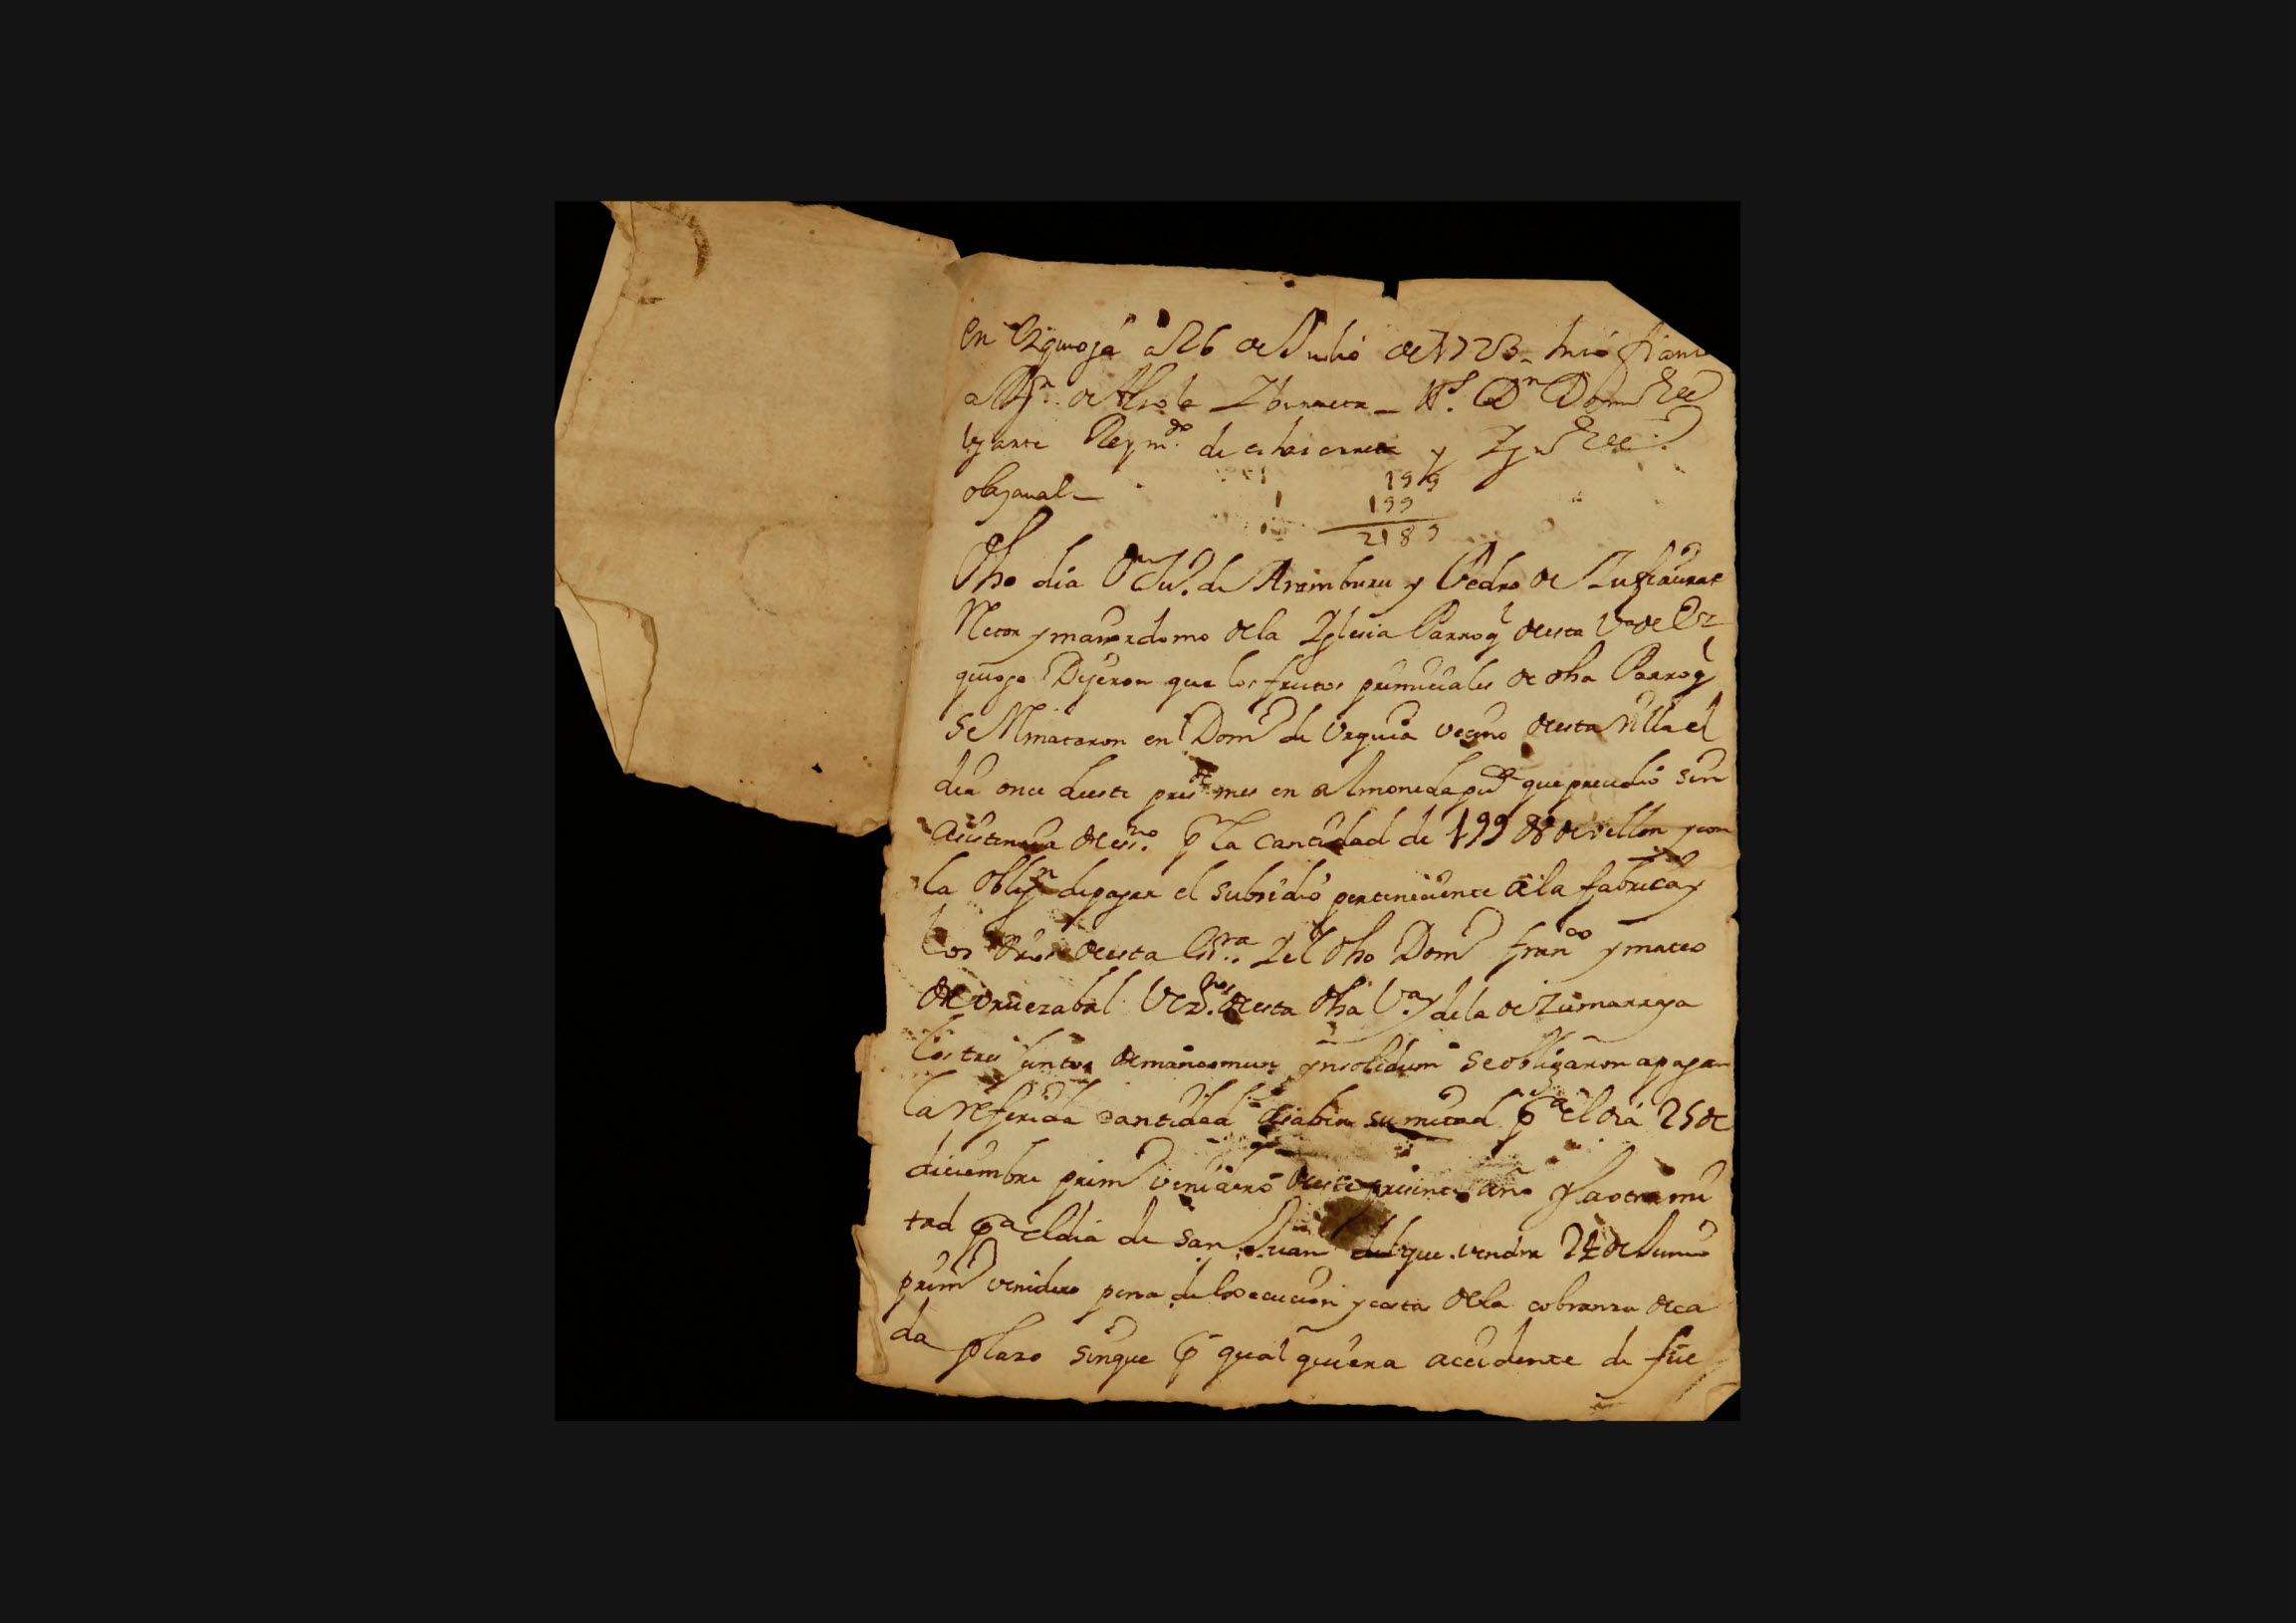 en Ezquioga a 26 de Julio de 1723_ hizo fianz
de Alzola Ybarreta _ Dn Domo
Ugarte y
obligaual_
199
199
2189
Dho dia Dn Ju.o de Aramburu y Pedro de Insaurrae
Retor y mayordomo de la Yglesia Parroql desta Va de Ez
quioga Dijeron que los frutos primiciales de dha Parroql
se Rmataron en Domo de Urquia vecino desta villa el
dia once deeste preste mes en almoneda puca que precedio sin
asistencia de ess.no p la cantidad de 199 Ds de vellon y con
la Oblign de pagar el subsidio perteneciente a la fabrica y
los drs desta Essra. Y el dho Domo Franco y mateo
de oruezabal Vezs.nos desta dha Va. y de la de Zumarraga
los tres juntos de mancomun ynsolidum se obligaron a pagar
la referida cantidad asaber su mitad pa el dia 25 de
diciembre primo venidero deste presente año y la otra mi
tad pa el dia de San Juan del que vendra 24 de Junio
primo venidero pena de Execucion y costas de la cobranza de ca
da plazo sin que p qualquiera accidente de fue